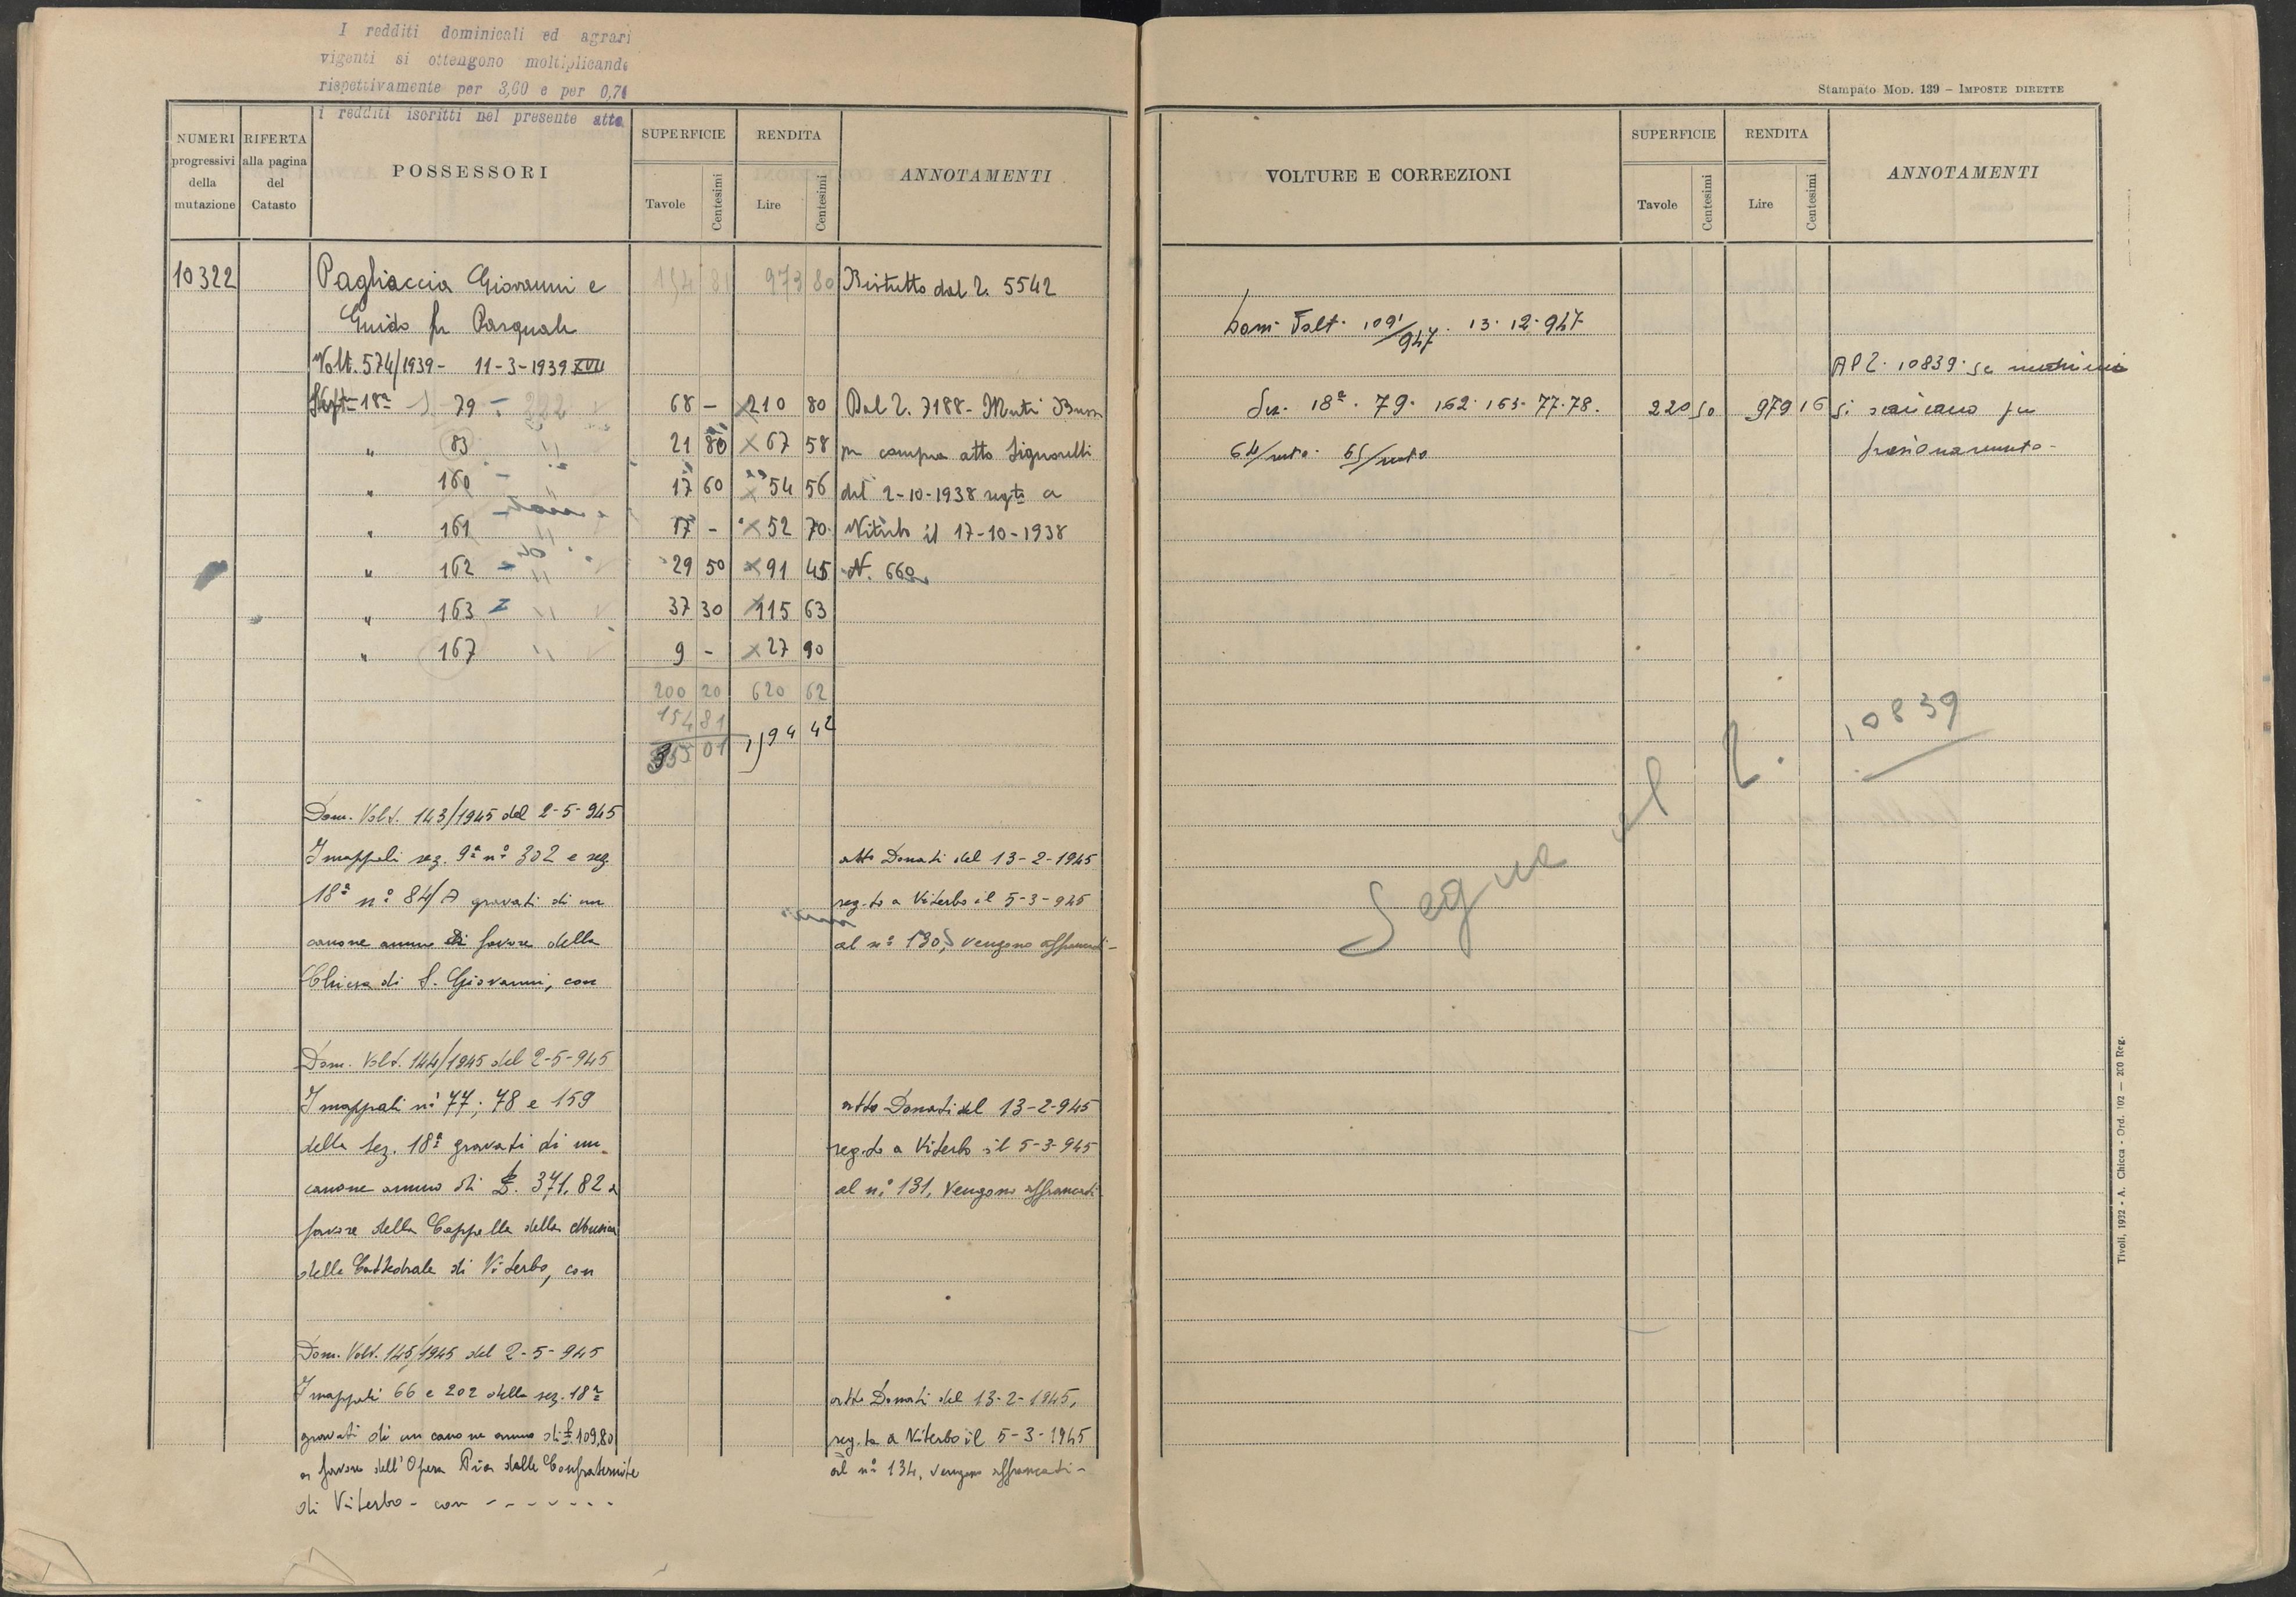 I redditi dominicali ed agrari
vigenti si ottengono moltiplicando
rispettivamente per 3,60 e per 0,71
i redditi iscritti nel presente atto
NUMERI progressivi della mutazione
RIFERTA alla pagina del Catasto
POSSESSORI
SUPERFICIE
Tavole Centesimi
RENDITA
Lire Centesimi
ANNOTAMENTI
10322 Pagliaccia Giovanni e 154 81 973 80 Ristretto dal 2. 5542
Guido fu Pasquale
Volt. 574/1939 - 11-3-1939 XVII
18ª 79 - 68 - 210 80 Dal 2. 7188 - Muti Bussi
" 83 21 80 67 58 per compra atto Signorelli
" 160 - 17 60 54 56 del 2-10-1938 regto a
" 161 17 - 52 70 Viterbo il 17-10-1938
" 162 29 50 91 45 N. 660
" 163 37 30 115 63
" 167 9 - 27 90
200 20 620 62
154 81
355 01 1594 42
Dom. Volt. 143/1945 del 2-5-945
I mappali sez. 9ª nº 302 e sez. atto Donati del 13-2-1945
18ª nº 84/A gravati di un reg.to a Viterbo il 5-3-945
canone annuo di favore della al nº 130, vengono affrancati -
Chiesa di S. Giovanni, con
Dom. Volt. 144/1945 del 2-5-945
I mappali nⁱ 77, 78 e 159 atto Donati del 13-2-945
della Sez. 18ª gravati di un reg.to a Viterbo il 5-3-945
canone annuo di £. 371.82 a al nº 131, vengono affrancati
favore della Cappella della Musica
della Cattedrale di Viterbo, con
Dom. Volt. 145/1945 del 2-5-945
I mappali 66 e 202 della sez. 18ª atto Donati del 13-2-1945,
gravati di un canone annuo di £ 109,80 reg.to a Viterbo il 5-3-1945
a favore dell'Opera Pia delle Confraternite al nº 134, vengono affrancati -
di Viterbo - con - - - - - - -
Stampato MOD. 139 – IMPOSTE DIRETTE
VOLTURE E CORREZIONI
SUPERFICIE
Tavole Centesimi
RENDITA
Lire Centesimi
ANNOTAMENTI
Dom. Volt. 1091/947. 13.12.947
Al 2. 10839. se
Sez. 18ª. 79. 162. 163. 77. 78. 220 50 979 16 si scaricano per
64/ 65/ frazionamento -
Segue al 2. 10839
Tivoli, 1932 - A. Chicca - Ord. 102 — 200 Reg.